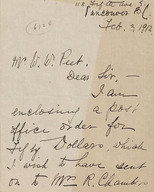 Vancouver B.C.
Feb. 3, 1912
Mr. W. W. Peet.
Dear Sir, —
I am
enclosing a post
office order for
Fifty Dollars, which
I wish to have sent
on to Mrs R. Chambers